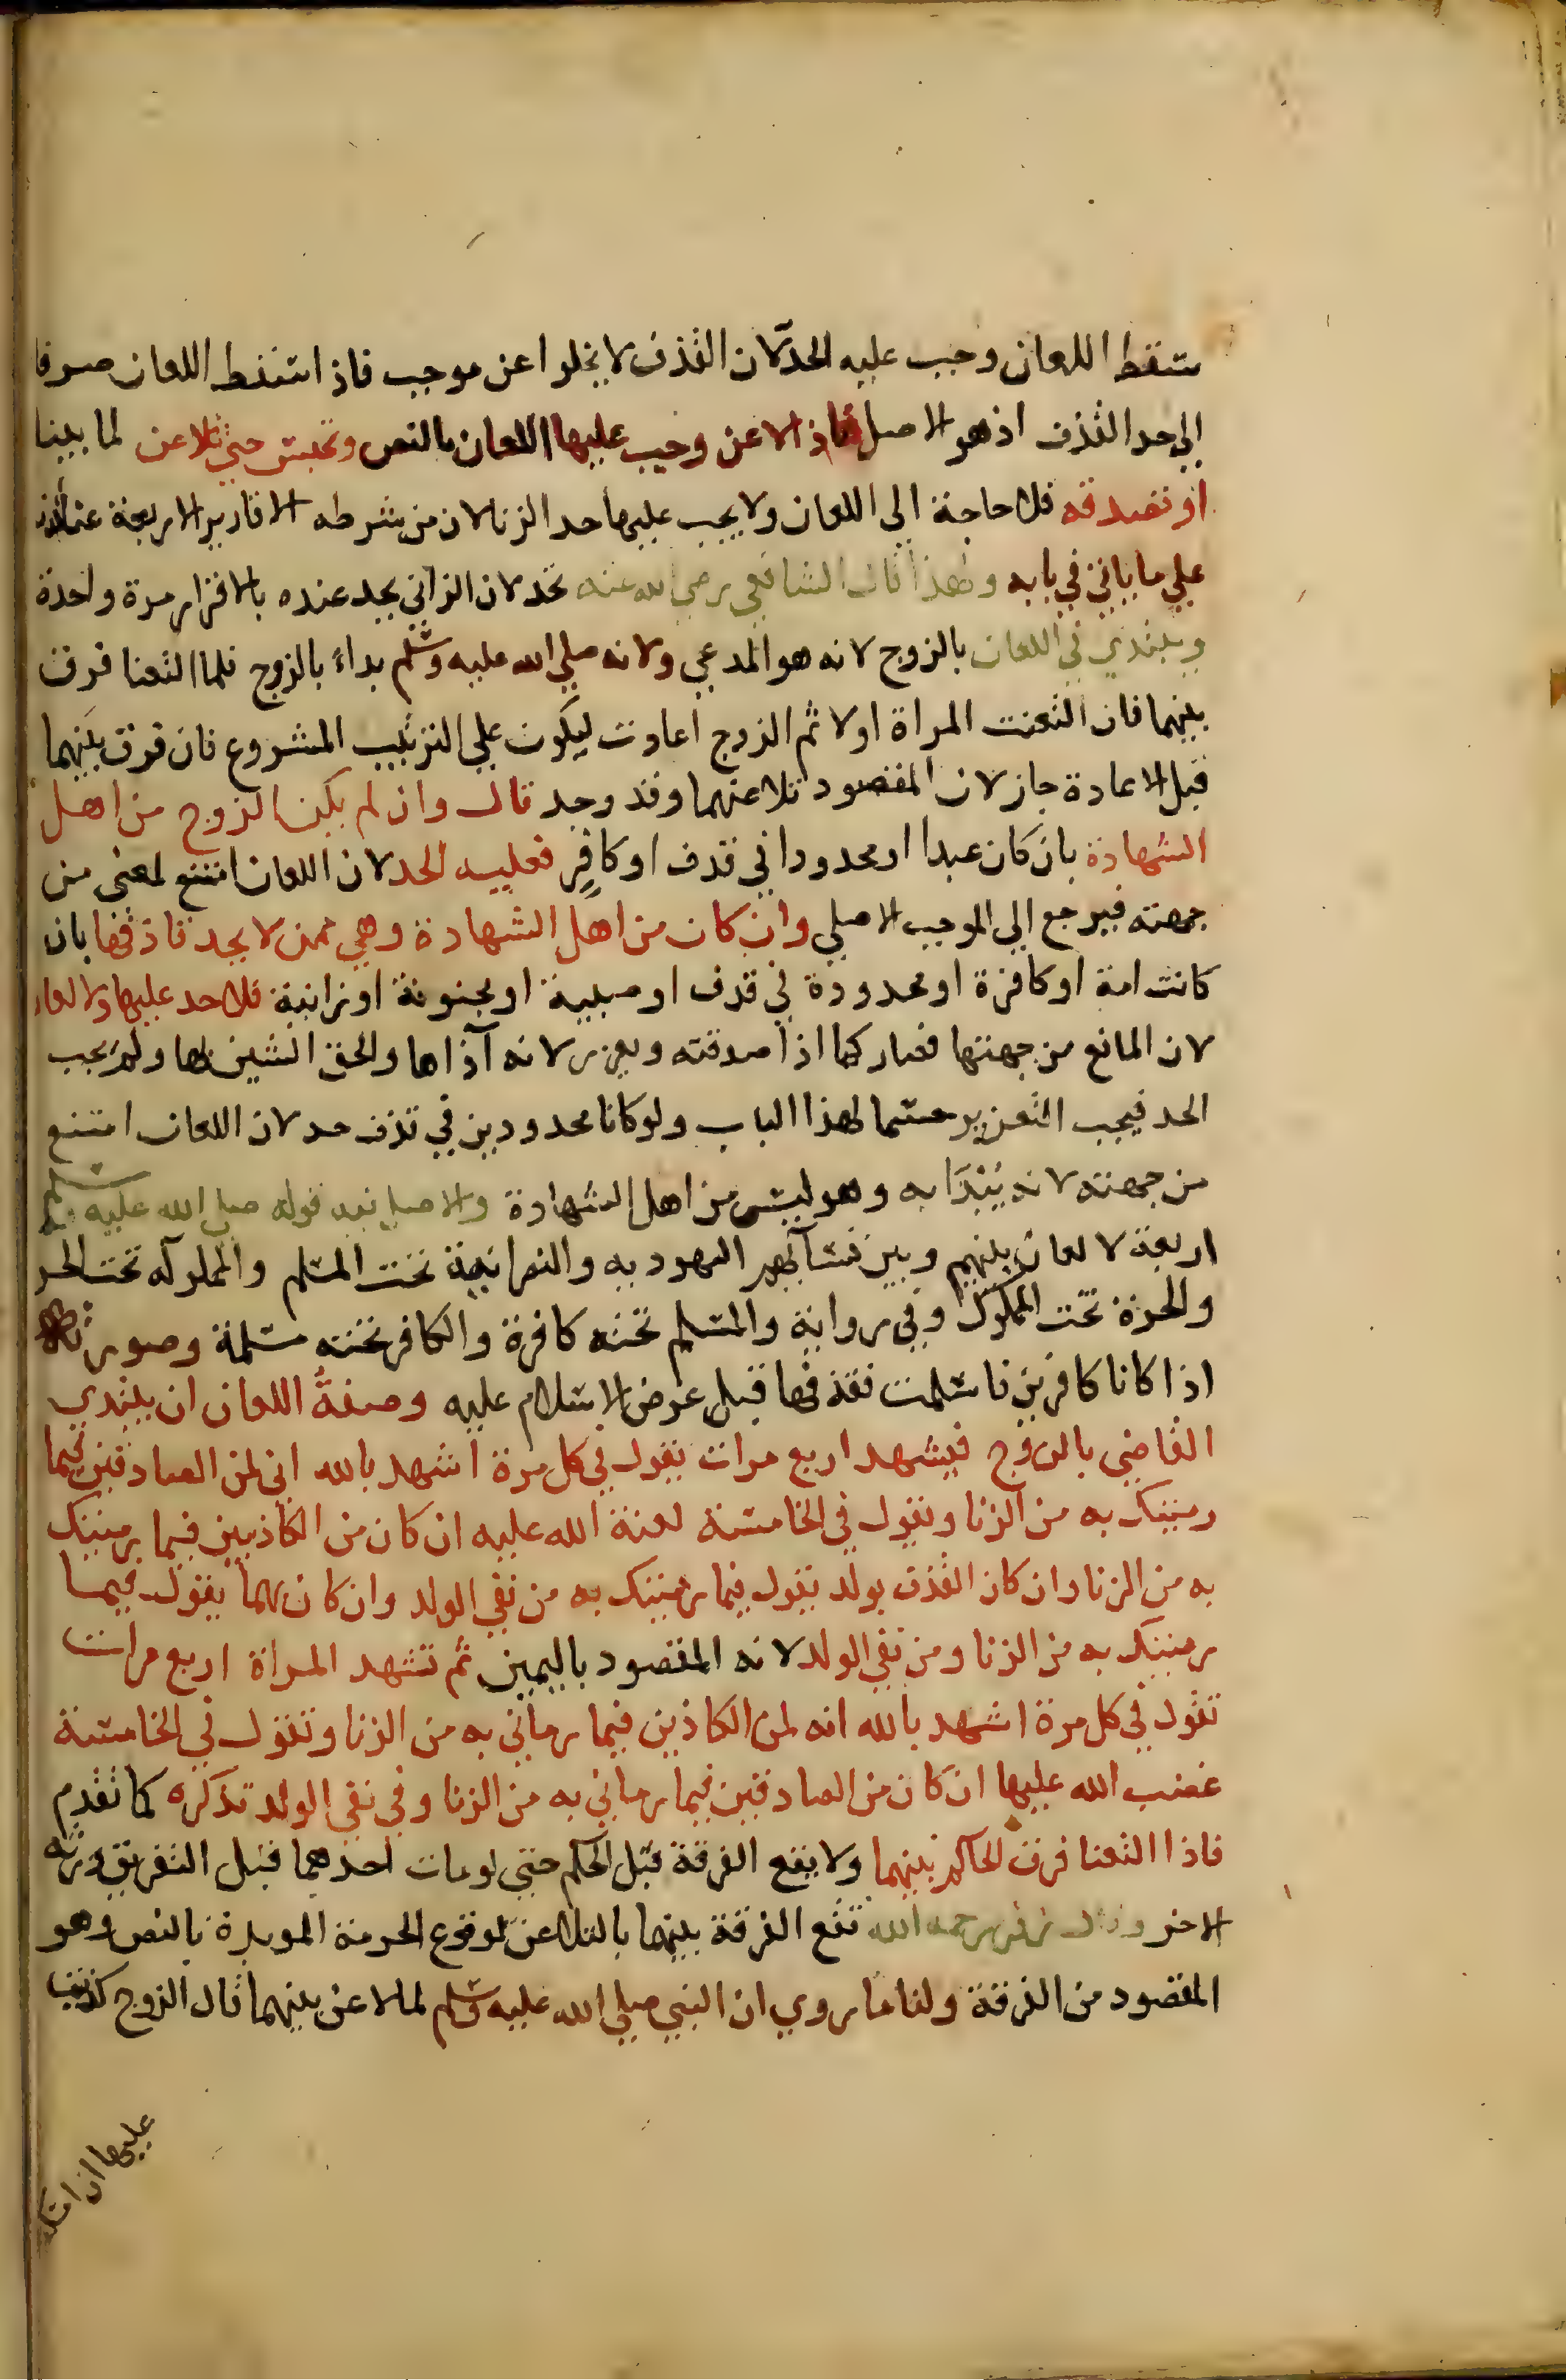 سقط اللعان وجب عليه الحد لان القذف لا يخلوا عن موجب فاذا سقط اللعان صرفا
الى حد القذف اذ هو الاصل فاذا لاعن وجب عليها اللعان بالنص وتحبس حتى تلاعن لما بينا
او تصدقه فلا حاجة الى اللعان ولا يجب عليها حد الزنا لان من شرطه الاقارير الاربعة عندنا
على ما ياتي في بابه وهذا قال الشافعي رضي الله عنه تحد لان الزاني يحد عنده بالاقرار مرة واحدة
ويبتدي في اللعان بالزوج لانه هو المدعي ولانه صلى الله عليه وسلم بداء بالزوج فلما التعنا فرق
بينهما فان التعنت المراة اولا ثم الزوج اعادت ليكون على الترتيب المشروع فان فرق بينهما
قبل الاعادة جاز لان المقصود تلاعنهما وقد وجد قال وان لم يكن الزوج من اهل
الشهادة بان كان عبدا او محدودا في قذف او كافر فعليه الحد لان اللعان امتنع لمعنى من
جهته فيرجع الى الموجب الاصلي وان كان من اهل الشهادة وهي ممن لا يحد قاذفها بان
كانت امة او كافرة او محدودة في قذف او صبية او مجنونة او زانية فلا حد عليها ولا لعان
لان المانع من جهتها فصار كما اذا صدقته ويعزر لانه آذاها والحق الشين بها ولم يجب
الحد فيجب التعزير حسما لهذا الباب ولو كانا محدودين في قذف حد لان اللعان امتنع
من جهته لانه يُبْتَدَا به وهو ليس من اهل الشهادة والاصل فيه قوله صلى الله عليه وسلم
اربعة لا لعان بينهم وبين نسآئهم اليهودية والنصرانية تحت المسلم والمملوكة تحت الحر
والحرة تحت المملوك وفي رواية والمسلم تحته كافرة والكافر تحته مسلمة وصورتها
اذا كانا كافرين فاسلمت فقذفها قبل عرض الاسلام عليه وصفة اللعان ان يبتدي
القاضي بالزوج فيشهد اربع مرات يقول في كل مرة اشهد بالله اني لمن الصادقين فيما
رميتك به من الزنا ويقول في الخامسة لعنة الله عليه ان كان من الكاذبين فيما رميتك
به من الزنا وان كان القذف بولد يقول فيما رميتك به من نفي الولد وان كان بهما يقول فيما
رميتك به من الزنا ومن نفي الولد لانه المقصود باليمين ثم تشهد المراة اربع مرات
تقول في كل مرة اشهد بالله انه لمن الكاذبين فيما رماني به من الزنا وتقول في الخامسة
غضب الله عليها ان كان من الصادقين فيما رماني به من الزنا وفي نفي الولد تذكره كما تقدم
فاذا التعنا فرق الحاكم بينهما ولا يقع الفرقة قبل الحكم حتى لو مات احدهما قبل التفريق ورثه
الاخر وقال زفر رحمه الله تقع الفرقة بينهما بالتلاعن لوقوع الحرمة الموبدة بالنص وهو
المقصود من الفرقة ولنا ما روي ان النبي صلى الله عليه وسلم لما لاعن بينهما قال الزوج كذبت
عليها ان امسكتها